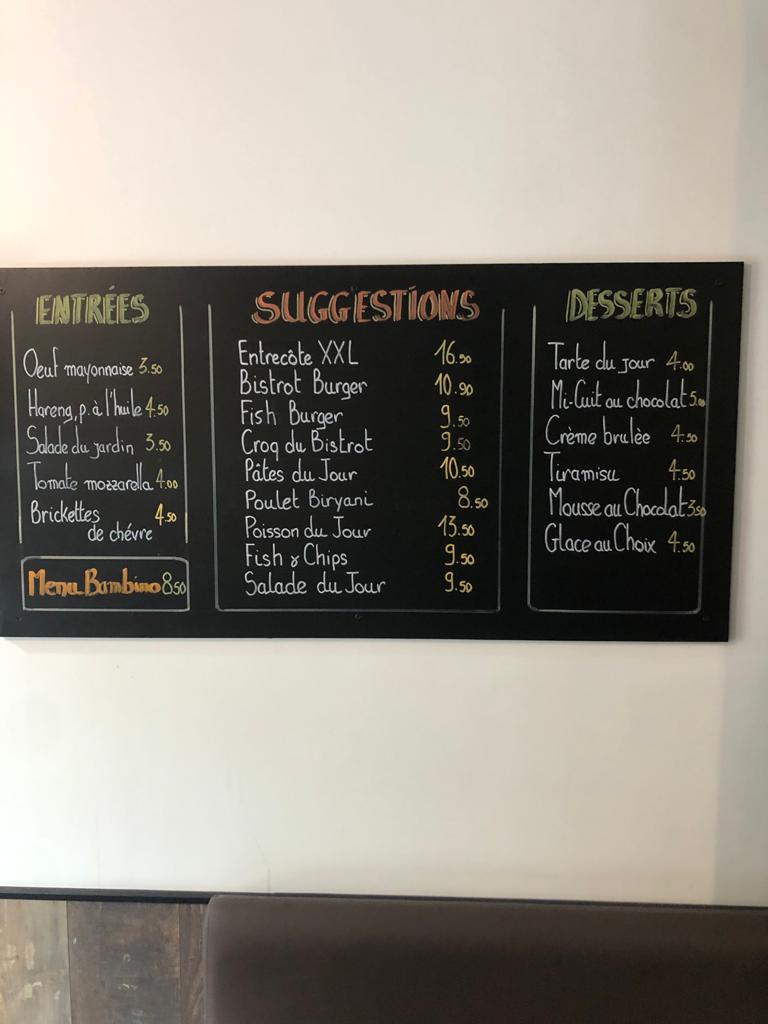 ENTRÉES
Oeuf mayonnaise 3.50
Hareng, p. à l'huile 4.50
Salade du jardin 3.50
Tomate mozzarella 4.00
Brickettes 4.50
de chévre
Menu Bambino 8.50
SUGGESTIONS
Entrecôte XXL 16.50
Bistrot Burger 10.90
Fish Burger 9.50
Croq du Bistrot 9.50
Pâtes du Jour 10.50
Poulet Biryani 8.50
Poisson du Jour 13.50
Fish & Chips 9.50
Salade du Jour 9.50
DESSERTS
Tarte du jour 4.00
Mi-Cuit au chocolat 5.00
Crème brulèe 4.50
Tiramisu 4.50
Mousse au Chocolat 3.50
Glace au Choix 4.50